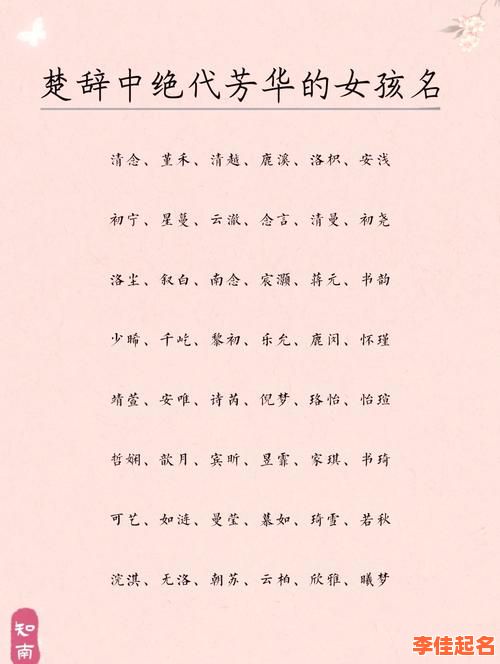 楚辞中绝代芳华的女孩名
清念、堇禾、清越、鹿溪、洛枳、安浅
初宁、星蔓、云澈、念言、清曼、初尧
洛尘、叙白、南念、宸灏、蒋元、书韵
少晞、千屹、黎初、乐允、鹿闵、怀瑾
靖萱、安唯、诗芮、倪梦、珞怡、怡瑄
哲娴、歆月、宾昕、昱霏、家琪、书琦
可艺、如涟、曼莹、慕如、琦雪、若秋
浣淇、无洛、朝苏、云柏、欣雅、曦梦
知南
李佳起名